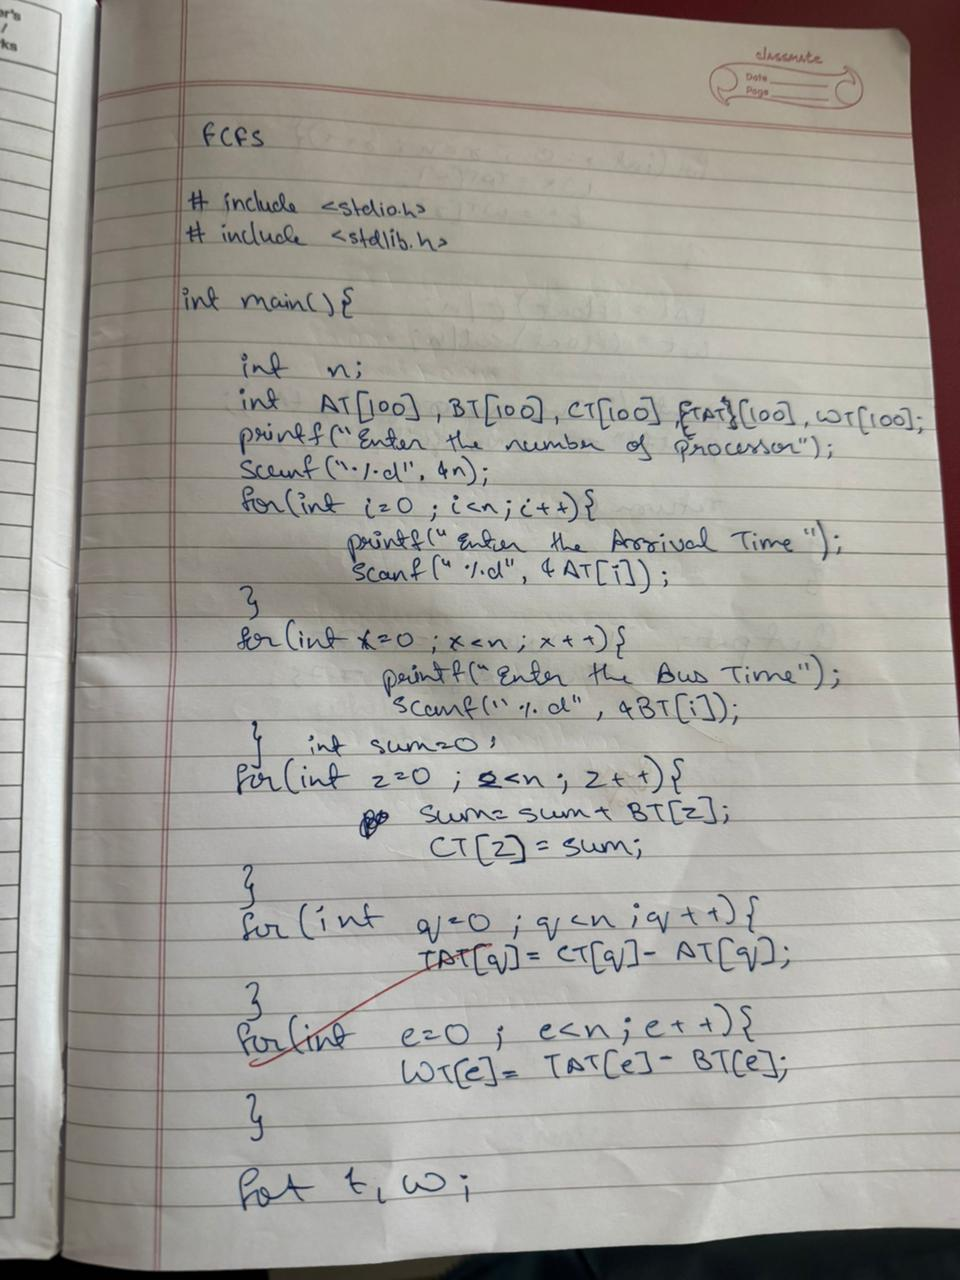 er's
/
ks
classmate
Date
Page
FCFS
# include <stdio.h>
# include <stdlib.h>
int main(){
int n;
int AT[100], BT[100], CT[100], {TAT}[100], WT[100];
printf("Enter the number of processor");
scanf("%d", &n);
for(int i=0; i<n; i++){
printf("Enter the Arrival Time");
scanf("%d", &AT[i]);
}
for(int x=0; x<n; x++){
printf("Enter the Bus Time");
scanf("%d", &BT[i]);
} int sum=0;
for(int z=0; z<n; z++){
sum= sum+ BT[z];
CT[z] = sum;
}
for(int q=0; q<n; q++){
TAT[q]= CT[q]- AT[q];
}
for(int e=0; e<n; e++){
WT[e]= TAT[e]- BT[e];
}
t, w;